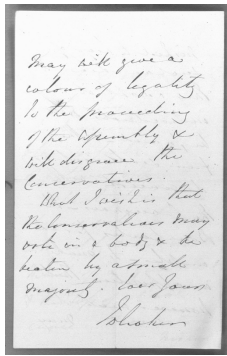 may will give a
colour of legality
to the proceeding
of the assembly &
will disgrace the
Conservatives.
But I wish is that
the Conservatives may
vote in a body & be
beaten by a small
majority. Ever Yours